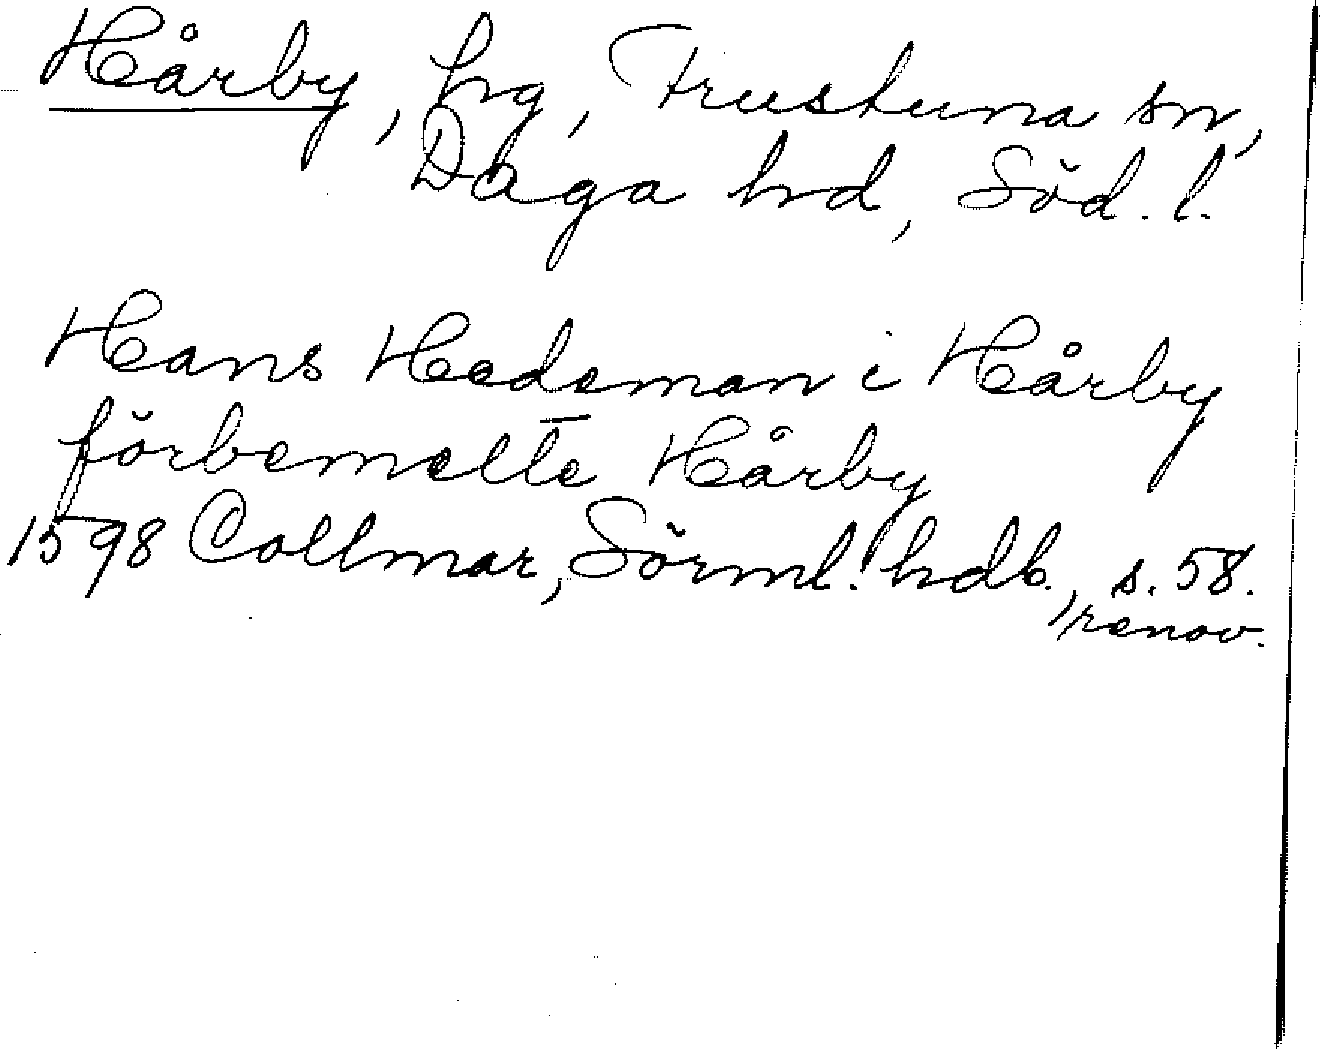 Hårby, hg, Frustuna sn,
Daga hd, Söd. l.
Hans Hedeman i Hårby
förbemelte Hårby
1598 Collmar, Sörml. hdb., s. 58.
renov.